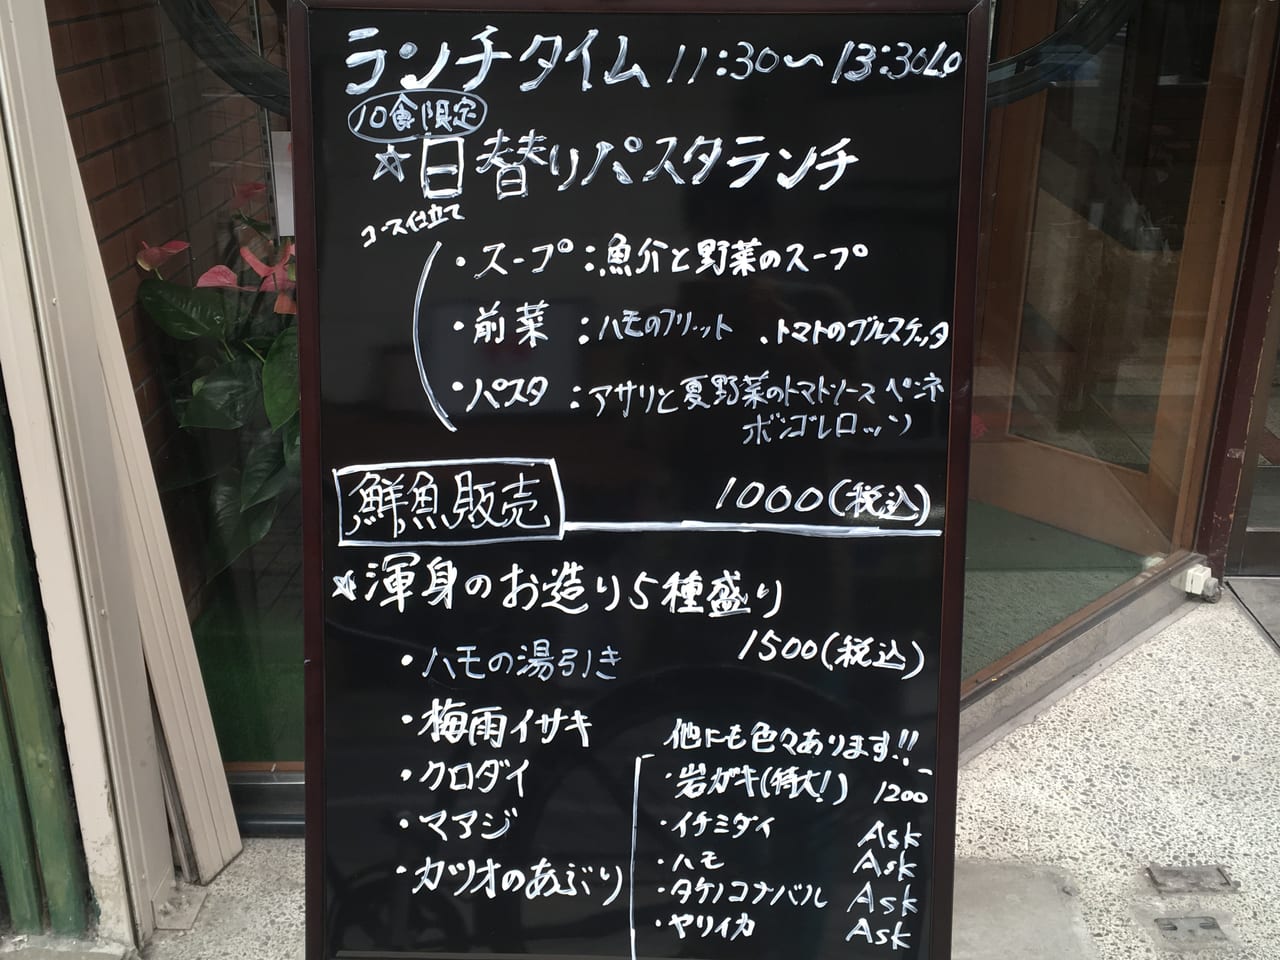 ランチタイム 11:30〜13:30LO
10食限定
☆日替りパスタランチ
コース仕立て
・スープ：魚介と野菜のスープ
・前菜：ハモのフリット ・トマトのブルスケッタ
・パスタ：アサリと夏野菜のトマトソース ペンネ
ボンゴレロッソ
1000(税込)
鮮魚販売
☆渾身のお造り5種盛り
1500(税込)
・ハモの湯引き
・梅雨イサキ
・クロダイ
・マアジ
・カツオのあぶり
他にも色々あります!!
・岩ガキ(特大!) 1200
・イチミダイ Ask
・ハモ Ask
・タケノコナバル Ask
・ヤリイカ Ask